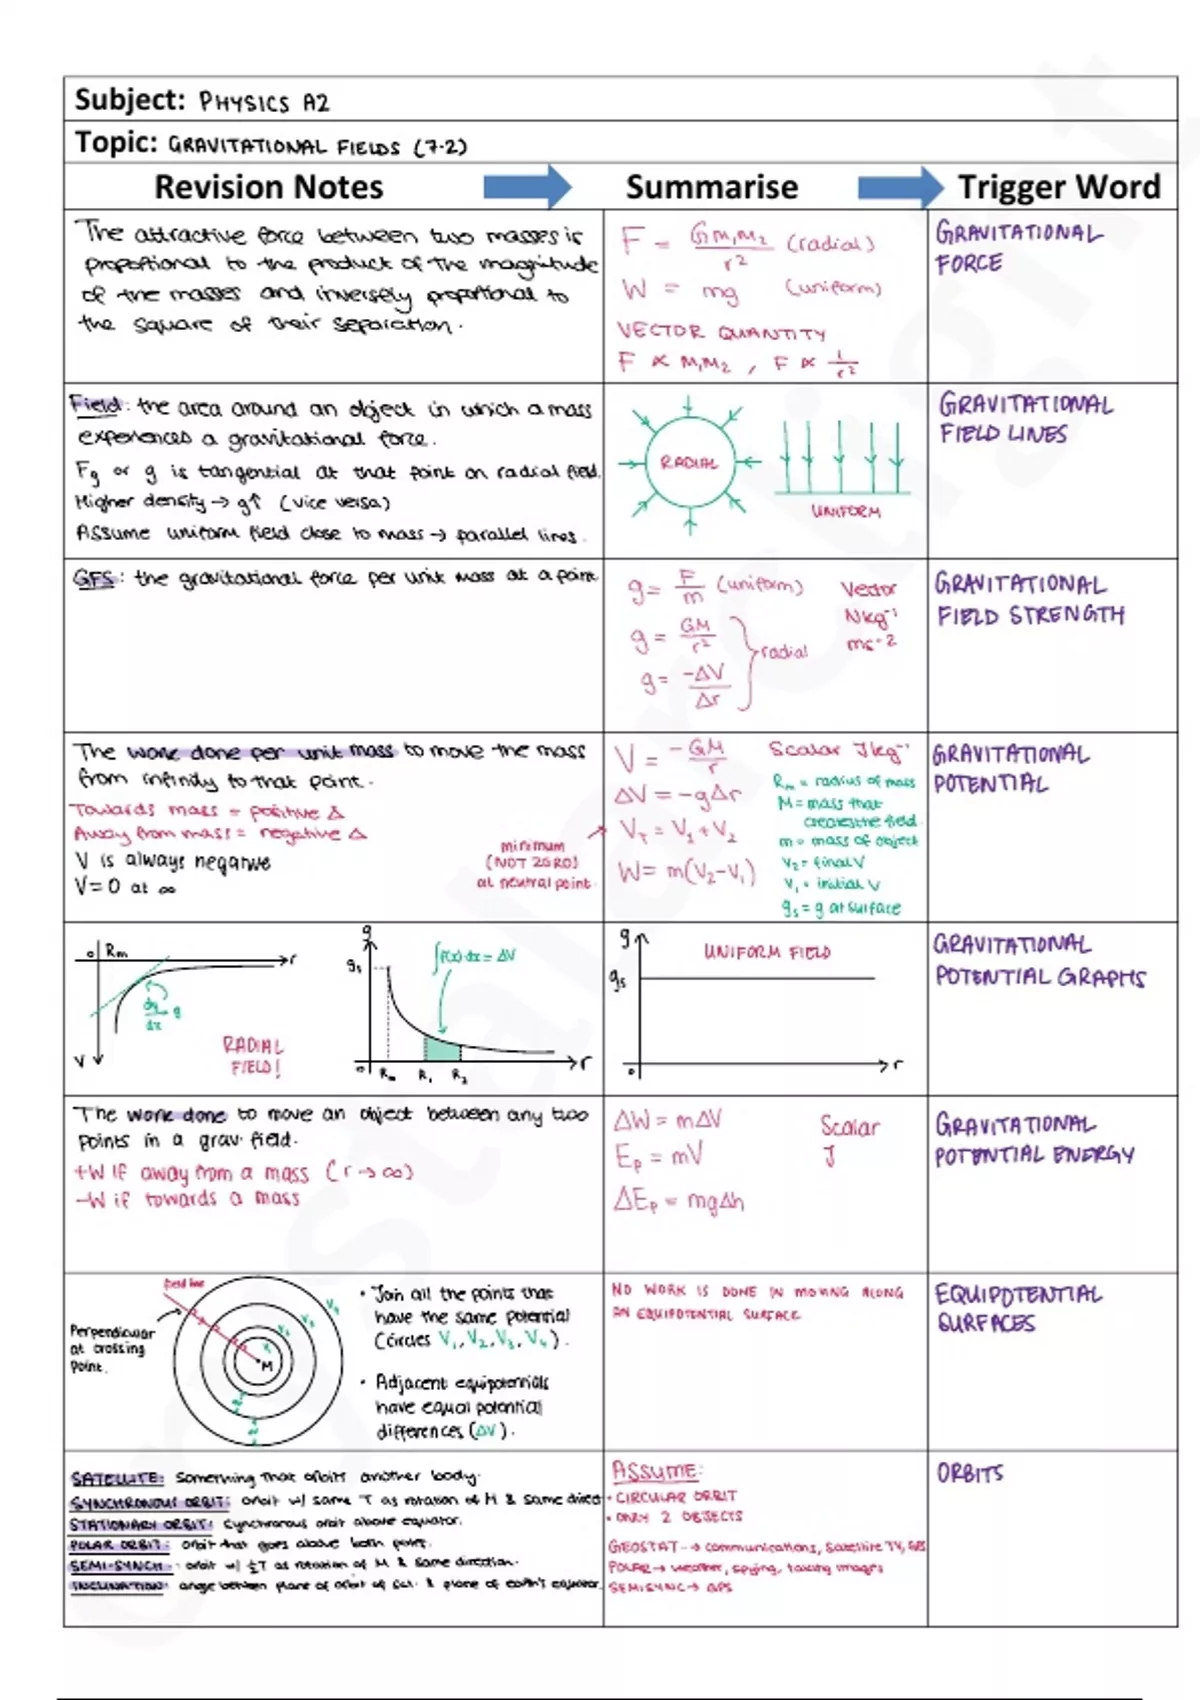 Subject: PHYSICS A2
Topic: GRAVITATIONAL FIELDS (7.2)
Revision Notes Summarise Trigger Word
The attractive force between two masses is
proportional to the product of the magnitude
of the masses and inversely proportional to
the square of their separation.
F = GM₁M₂/r² (radial)
W = mg (uniform)
VECTOR QUANTITY
F ∝ M₁M₂ , F ∝ 1/r²
GRAVITATIONAL
FORCE
Field: the area around an object in which a mass
experiences a gravitational force.
Fg or g is tangential at that point on radial field.
Higher density → g↑ (vice versa)
Assume uniform field close to mass → parallel lines.
RADIAL
UNIFORM
GRAVITATIONAL
FIELD LINES
GFS: the gravitational force per unit mass at a point
g = F/m (uniform)
g = GM/r²
g = -ΔV/Δr
radial
Vector
Nkg⁻¹
ms⁻²
GRAVITATIONAL
FIELD STRENGTH
The work done per unit mass to move the mass
from infinity to that point.
Towards mass = positive Δ
Away from mass = negative Δ
V is always negative
V=0 at ∞
minimum
(NOT ZERO)
at neutral point.
V = -GM/r
ΔV = -gΔr
V_T = V₁ + V₂
W = m(V₂-V₁)
Scalar Jkg⁻¹
Rm = radius of mass
M = mass that
creates the field.
m = mass of object
V₂ = final V
V₁ = initial V
gs = g at surface
GRAVITATIONAL
POTENTIAL
0 Rm r
dy/dx = g
V
RADIAL
FIELD!
g
gs
∫f(x) dx = ΔV
0 Rm R₁ R₂ r
g
gs
UNIFORM FIELD
0 r
GRAVITATIONAL
POTENTIAL GRAPHS
The work done to move an object between any two
points in a grav. field.
+W if away from a mass (r → ∞)
-W if towards a mass
ΔW = mΔV
Ep = mV
ΔEp = mgΔh
Scalar
J
GRAVITATIONAL
POTENTIAL ENERGY
field line
Perpendicular
at crossing
point.
M
V₄
• Join all the points that
have the same potential
(circles V₁, V₂, V₃, V₄).
• Adjacent equipotentials
have equal potential
differences (ΔV).
NO WORK IS DONE IN MOVING ALONG
AN EQUIPOTENTIAL SURFACE
EQUIPOTENTIAL
SURFACES
SATELLITE: Something that orbits another body.
SYNCHRONOUS ORBIT: orbit w/ same T as rotation of M & same direct
STATIONARY ORBIT: Synchronous orbit above equator.
POLAR ORBIT: orbit that goes above both
SEMI-SYNCH: orbit w/ ½T as rotation of M & same direction.
INCLINATION: angle between plane of orbit of sat. & plane of earth's equator.
ASSUME:
• CIRCULAR ORBIT
• ONLY 2 OBJECTS
GEOSTAT → communications, Satellite TV, GPS
POLAR → weather, spying, taking images
SEMISYNC → GPS
ORBITS